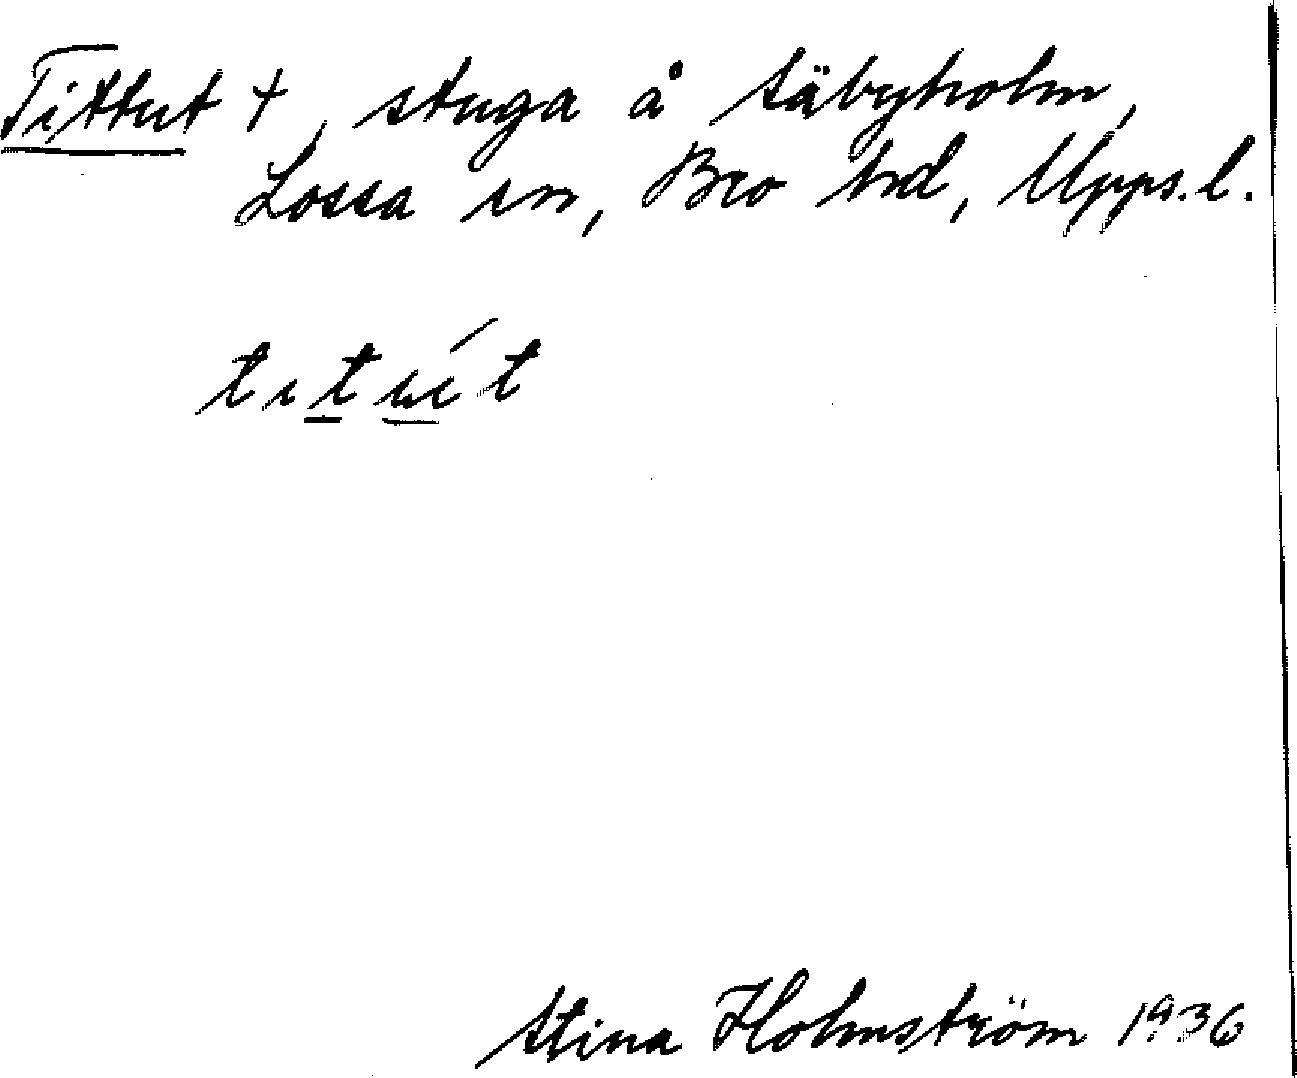 Tittut †, stuga å Säbyholm,
Lossa sn, Bro hd, Upps.l.
Stina Holmström 1936